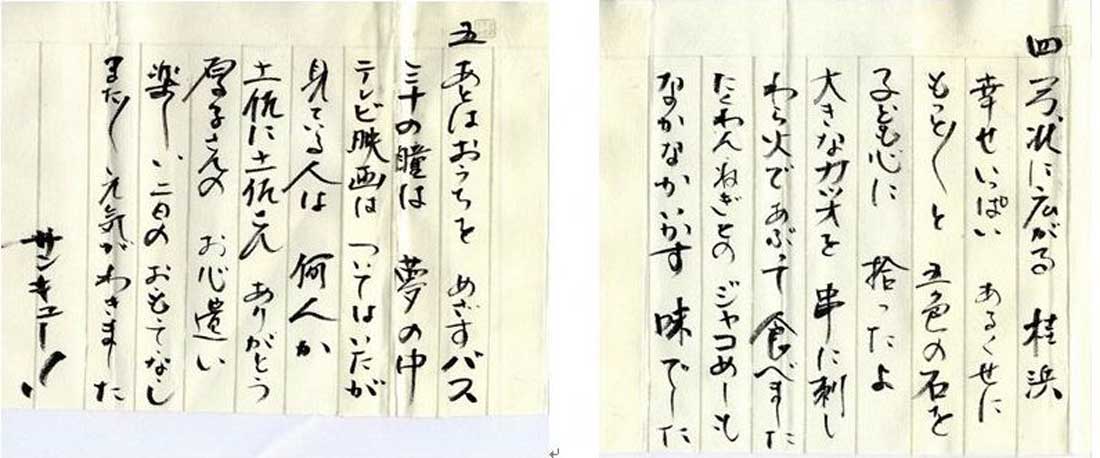 四 弓状に広がる 桂浜
幸せいっぱい あるくせに
もっと〳〵と 五色の石を
子ども心に 拾ったよ
大きなカツオを 串に刺し
わら火であぶって 食べました
たくわん、ねぎとの ジャコめしも
なかなかいかす 味でした
五 あとはおうちを めざすバス
三十の瞳は 夢の中
テレビ映画は ついてはいたが
見ている人は 何人か
土佐に土佐 ありがとう
厚子さんの お心遣い
楽しい二日の おもてなし
また〳〵 元気がわきました
サンキュー!